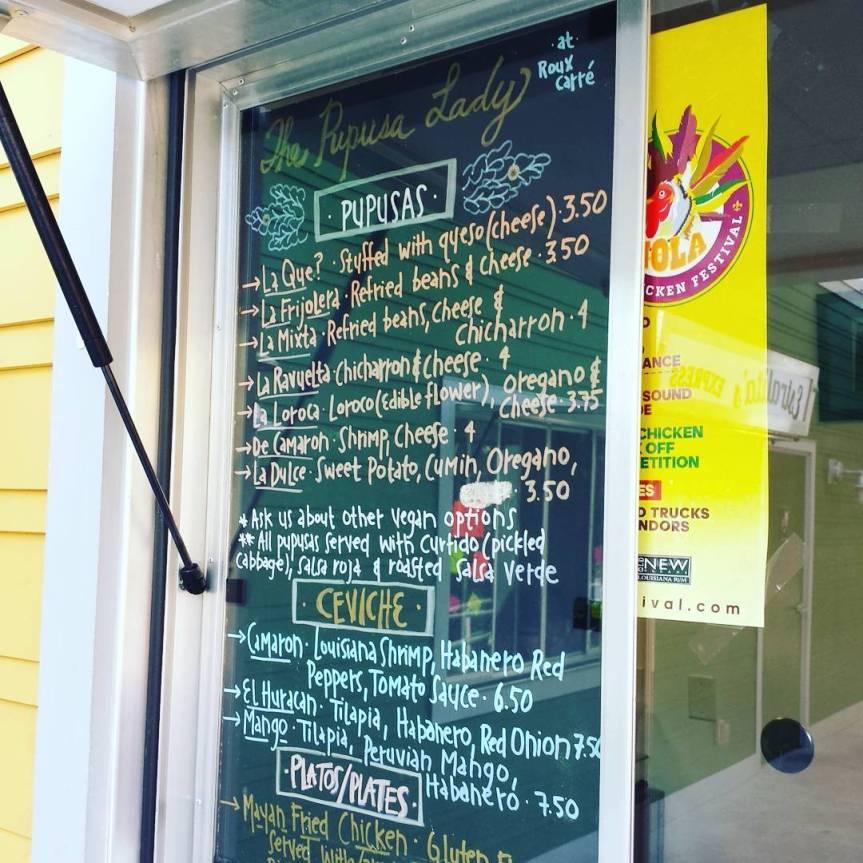 at
Roux
Carré
The Pupusa Lady
· PUPUSAS ·
→ La Que? · Stuffed with queso (cheese) · 3.50
→ La Frijolera · Refried beans & cheese · 3.50
→ La Mixta · Refried beans, cheese &
chicharron · 4
→ La Ravuelta · chicharron & cheese · 4
→ La Loroca · Loroco (Edible flower), oregano &
cheese · 3.75
→ De Camaron · Shrimp, Cheese · 4
→ La Dulce · Sweet Potato, Cumin, Oregano,
· 3.50
* Ask us about other vegan options
** All pupusas served with curtido (pickled
cabbage), salsa roja & roasted salsa verde
· CEVICHE ·
→ Camaron · Louisiana Shrimp, Habanero Red
Peppers, Tomato Sauce · 6.50
→ El Huracan · Tilapia, Habanero, Red Onion 7.50
→ Mango · Tilapia, Peruvian Mango,
Habanero · 7.50
· PLATOS/PLATES ·
→ Mayan Fried Chicken · Gluten
Served with
OLA
CKEN FESTIVAL
ANCE
SOUND
DE
CHICKEN
OFF
ETITION
ES
D TRUCKS
NDORS
NEW
LOUISIANA RUM
ival.com
EXPRESS